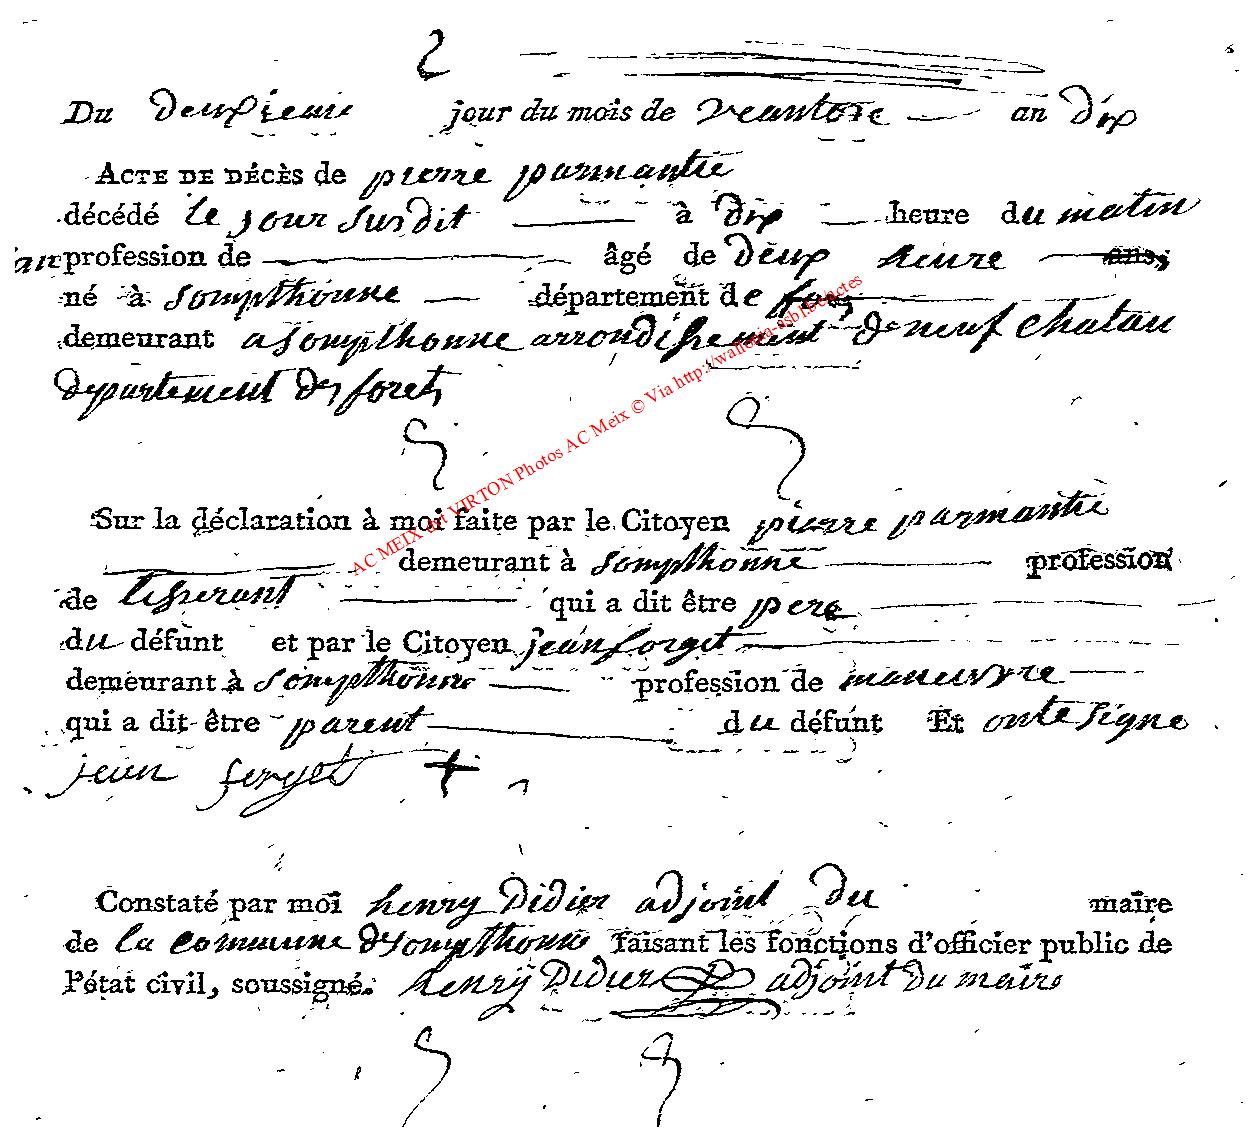 2
Du deuxieme jour du mois de veantose an dix
ACTE DE DÉCÈS de pierre parmantie
décédé le jour surdit à dix heure du matin
profession de âgé de deux heure ans,
né à Sompthonne département de
demeurant a Sompthonne arrondissement de neuf chatau
departement des forets
Sur la déclaration à moi faite par le Citoyen pierre parmantie
demeurant à Sompthonne profession
de tisserant qui a dit être pere
du défunt et par le Citoyen jean forget
demeurant à Sompthonne profession de maneuvre
qui a dit être parent du défunt Et onte signe
jean forget +
Constaté par moi henry Didier adjoint du maire
de la commune de Sompthonne faisant les fonctions d'officier public de
l'état civil, soussigné. henry Didier adjoint du maire
AC MEIX dvt VIRTON Photos AC Meix © Via http://wallonia-asbl.be/actes